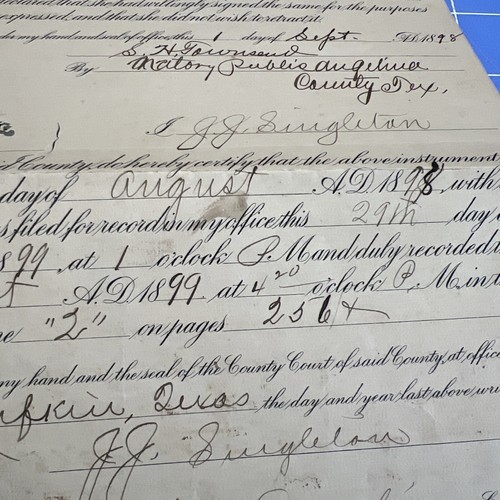 that she had willingly signed the same for the purposes
expressed, and that she did not wish to retract it.
my hand and seal of office, this 1 day of Sept. A.D. 1898
S. H. Townsend
By Notary Public Angelina
County Tex.
I J. J. Singleton
County, do hereby certify that the above instrument
day of August A.D. 1898, with
filed for record in my office this 29th day
99, at 1 o'clock P.M. and duly recorded
A.D. 1899 at 4 20 o'clock P.M. in
"2" on pages 256
my hand and the seal of the County Court of said County, at office
Texas the day and year last above
J. J. Singleton